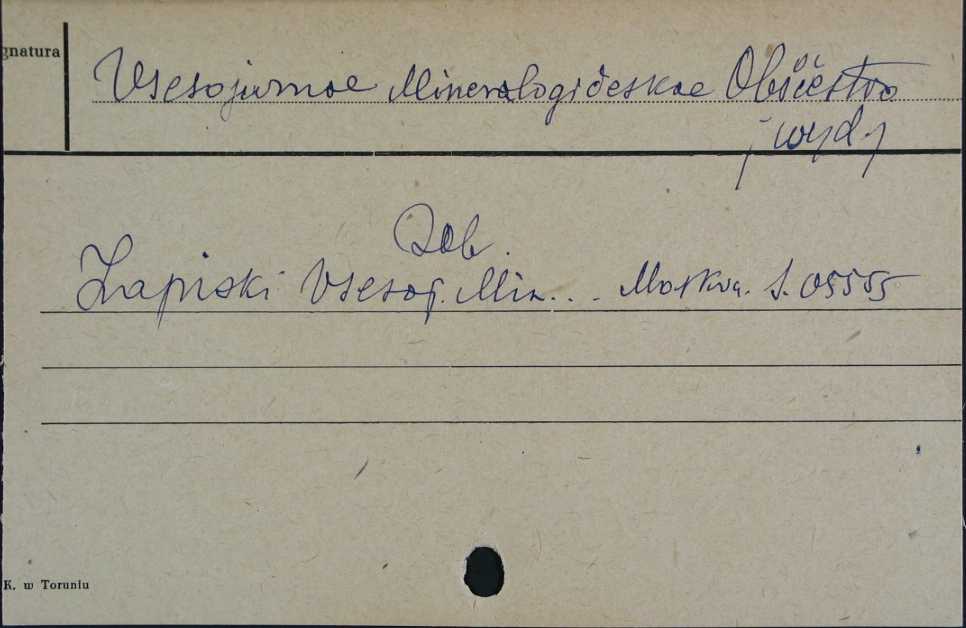 gnatura
Vsesojuznoe Mineralogičeskoe Obščestvo
/wyd./
Zob.
Zapiski Vsesoj. Min... Moskva. S. 05555
K. w Toruniu